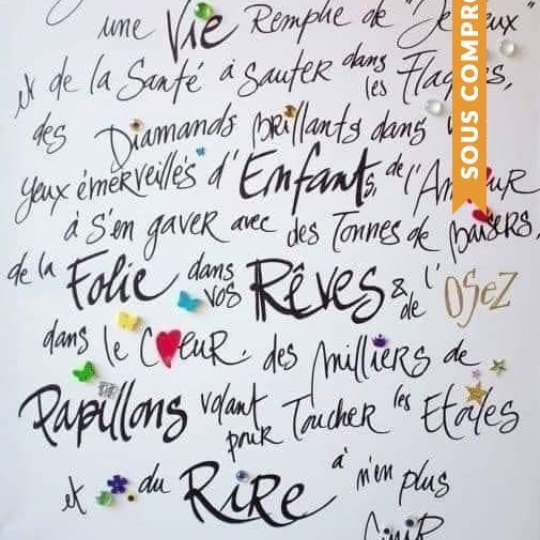 une Vie Remplie de "Je veux"
et de la Santé à Sauter dans les Flaques,
des Diamands brillants dans
yeux émerveillés d'Enfants, de l'Amour
à s'en gaver avec des Tonnes de baisers,
de la Folie dans vos Rêves & de l'Osez
dans le Cœur, des Milliers de
Papillons volant pour Toucher les Etoiles
et du RiRe à n'en plus
finiR
SOUS COMPRO